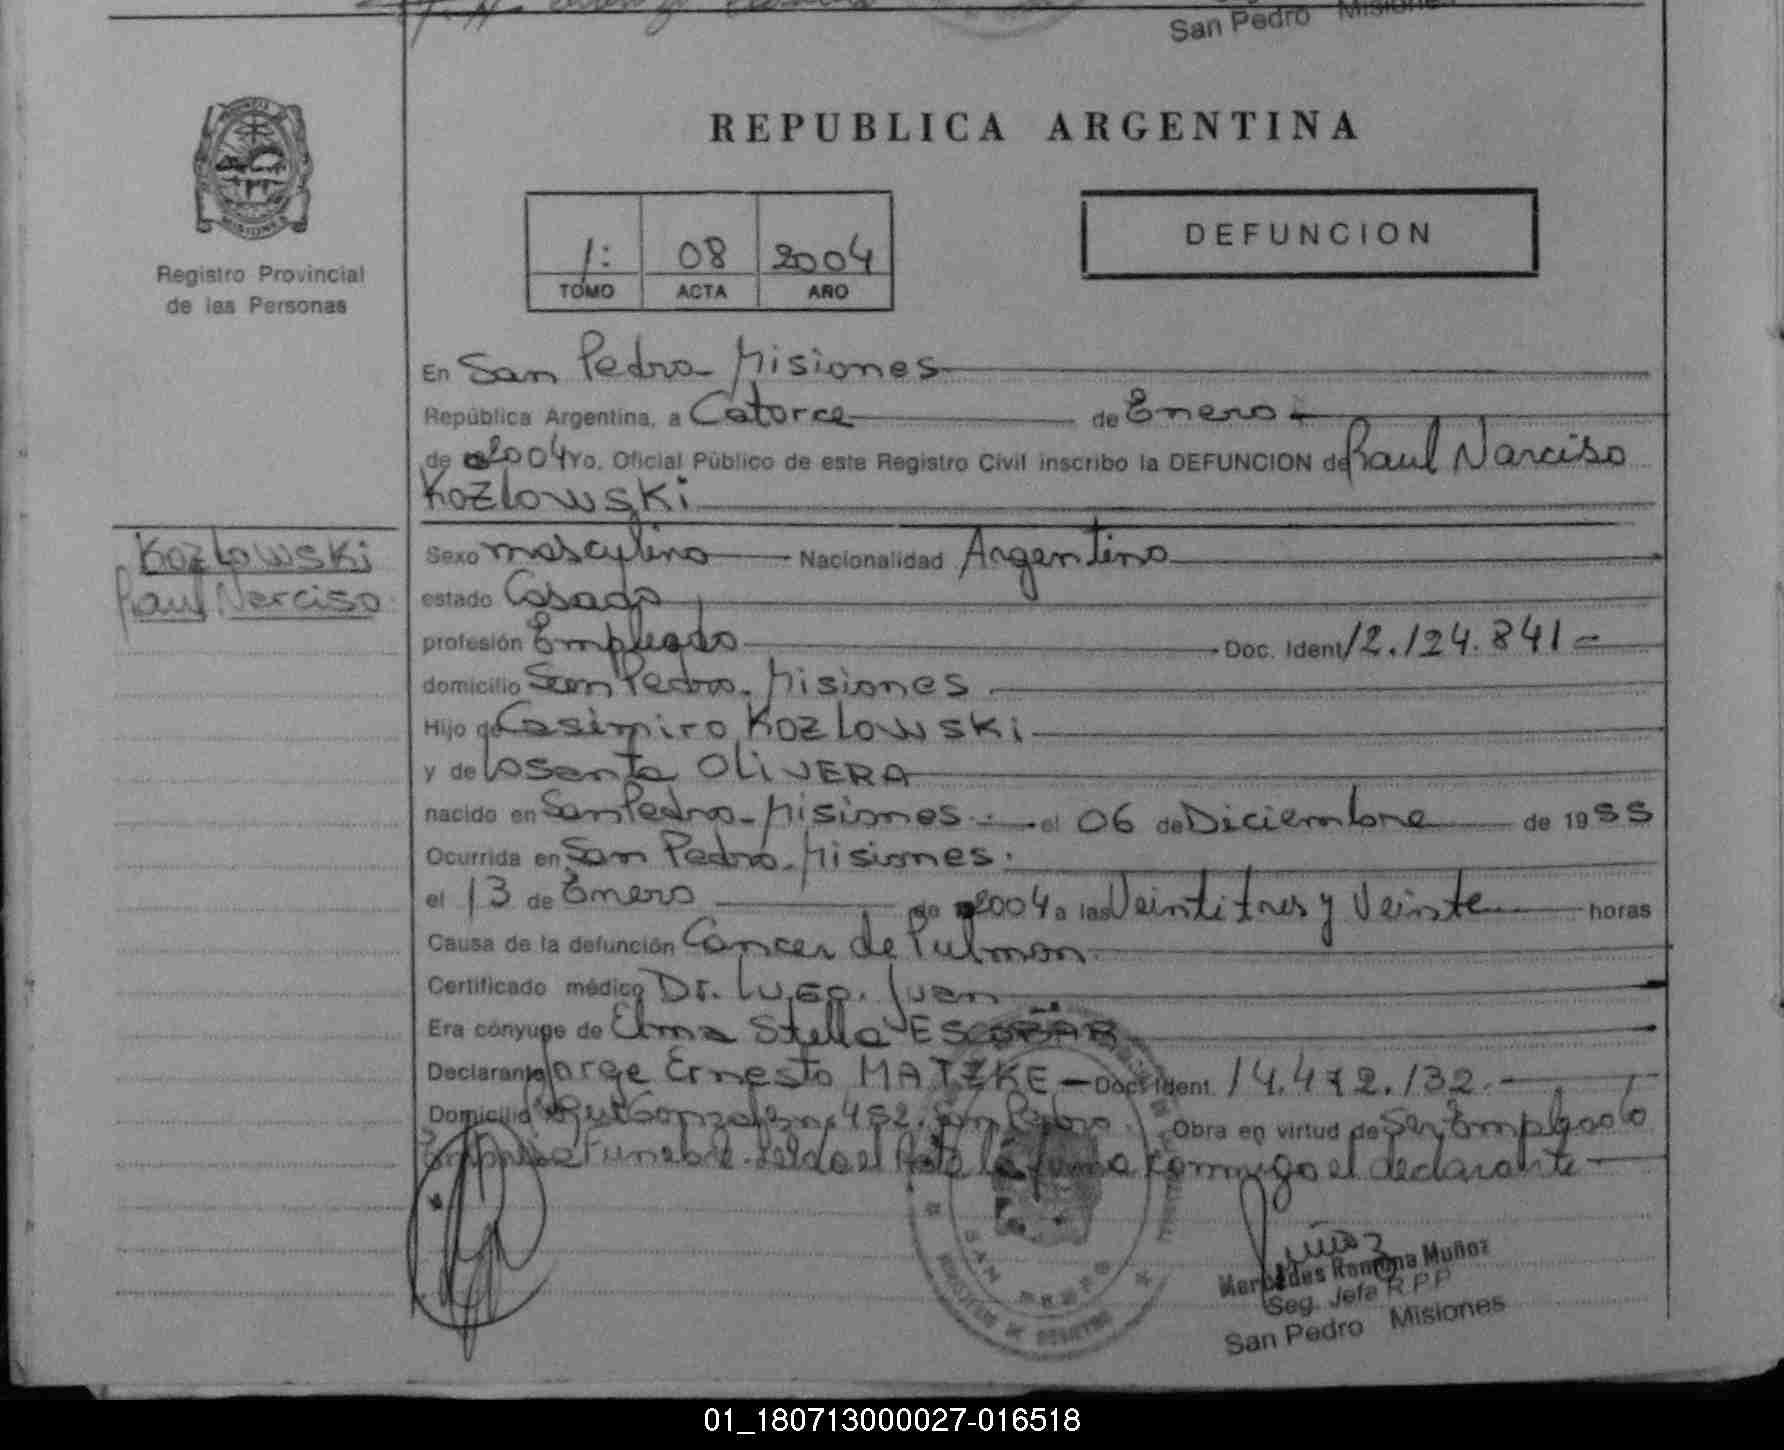 San Pedro Misiones
REPUBLICA ARGENTINA
MISIONES
Registro Provincial
de las Personas
1: 08 2004
TOMO ACTA AÑO
DEFUNCION
En San Pedro - Misiones
República Argentina, a Catorce de Enero
de 2004 Yo. Oficial Público de este Registro Civil inscribo la DEFUNCION de Raul Narciso
Kozlowski
Kozlowski
Raul Narciso
Sexo masculino Nacionalidad Argentino
estado Casado
profesión Empleado Doc. Ident 12.124.841
domicilio San Pedro - Misiones
Hijo de Casimiro Kozlowski
y de Osenta OLIVERA
nacido en San Pedro - Misiones. el 06 de Diciembre de 1955
Ocurrida en San Pedro - Misiones.
el 13 de Enero de 2004 a las Veintitres y Veinte horas
Causa de la defunción Cancer de Pulmon
Certificado médico Dr. Lugo, Juan
Era cónyuge de Elma Stella ESCOBAR
Declarante Jorge Ernesto MATZKE - Doc. Ident. 14.472.132
Domicilio 452. San Pedro. Obra en virtud de Ser Empleado
Empresa Funebre. Leida el Acta la firma conmigo el declarante
Muñoz
Mercedes Ramona Muñoz
Seg. Jefa R.P.P
San Pedro Misiones
SAN PEDRO
01_180713000027-016518